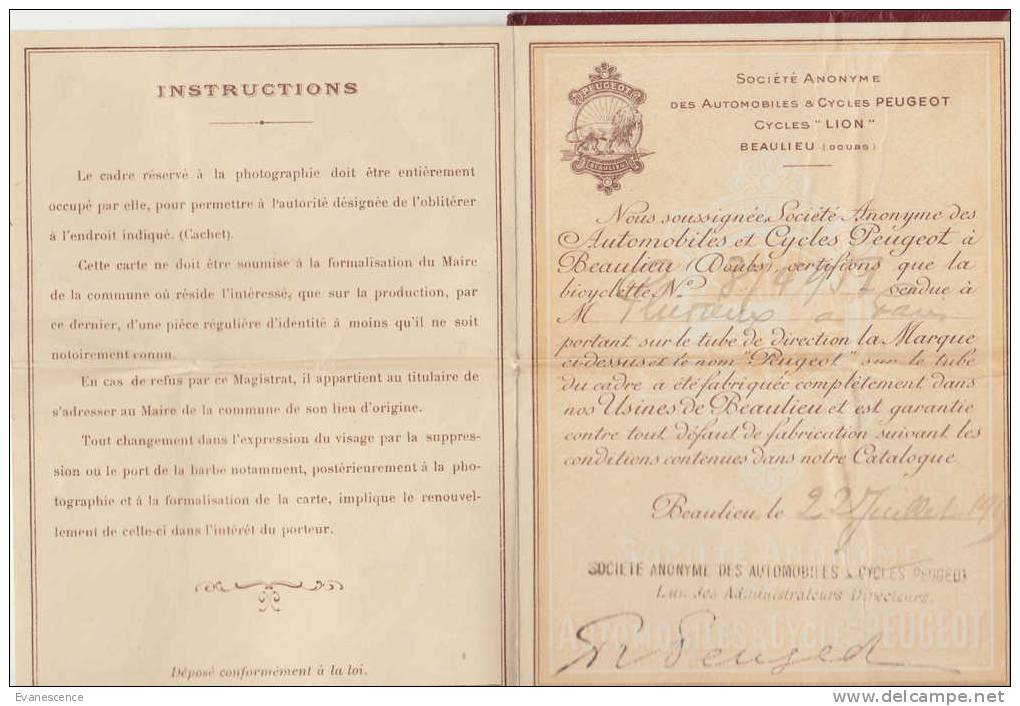 INSTRUCTIONS
Le cadre réservé à la photographie doit être entièrement
occupé par elle, pour permettre à l'autorité désignée de l'oblitérer
à l'endroit indiqué. (Cachet).
Cette carte ne doit être soumise à la formalisation du Maire
de la commune où réside l'intéressé, que sur la production, par
ce dernier, d'une pièce régulière d'identité à moins qu'il ne soit
notoirement connu.
En cas de refus par ce Magistrat, il appartient au titulaire de
s'adresser au Maire de la commune de son lieu d'origine.
Tout changement dans l'expression du visage par la suppres-
sion ou le port de la barbe notamment, postérieurement à la pho-
tographie et à la formalisation de la carte, implique le renouvel-
lement de celle-ci dans l'intérêt du porteur.
Déposé conformément à la loi.
PEUGEOT
BEAULIEU
SOCIÉTÉ ANONYME
DES AUTOMOBILES & CYCLES PEUGEOT
CYCLES "LION"
BEAULIEU (DOUBS)
Nous soussignée, Société Anonyme des
Automobiles et Cycles Peugeot à
Beaulieu (Doubs), certifions que la
bicyclette No vendue à
M à Paris
portant sur le tube de direction la Marque
ci-dessus et le nom "Peugeot" sur le tube
du cadre a été fabriquée complètement dans
nos Usines de Beaulieu et est garantie
contre tout défaut de fabrication suivant les
conditions contenues dans notre Catalogue
Beaulieu, le 22 Juillet
SOCIÉTÉ ANONYME
SOCIETE ANONYME DES AUTOMOBILES & CYCLES PEUGEOT
L'un des Administrateurs Directeurs.
AUTOMOBILES & CYCLES PEUGEOT
Peugeot
Evanescence
delcampe.net